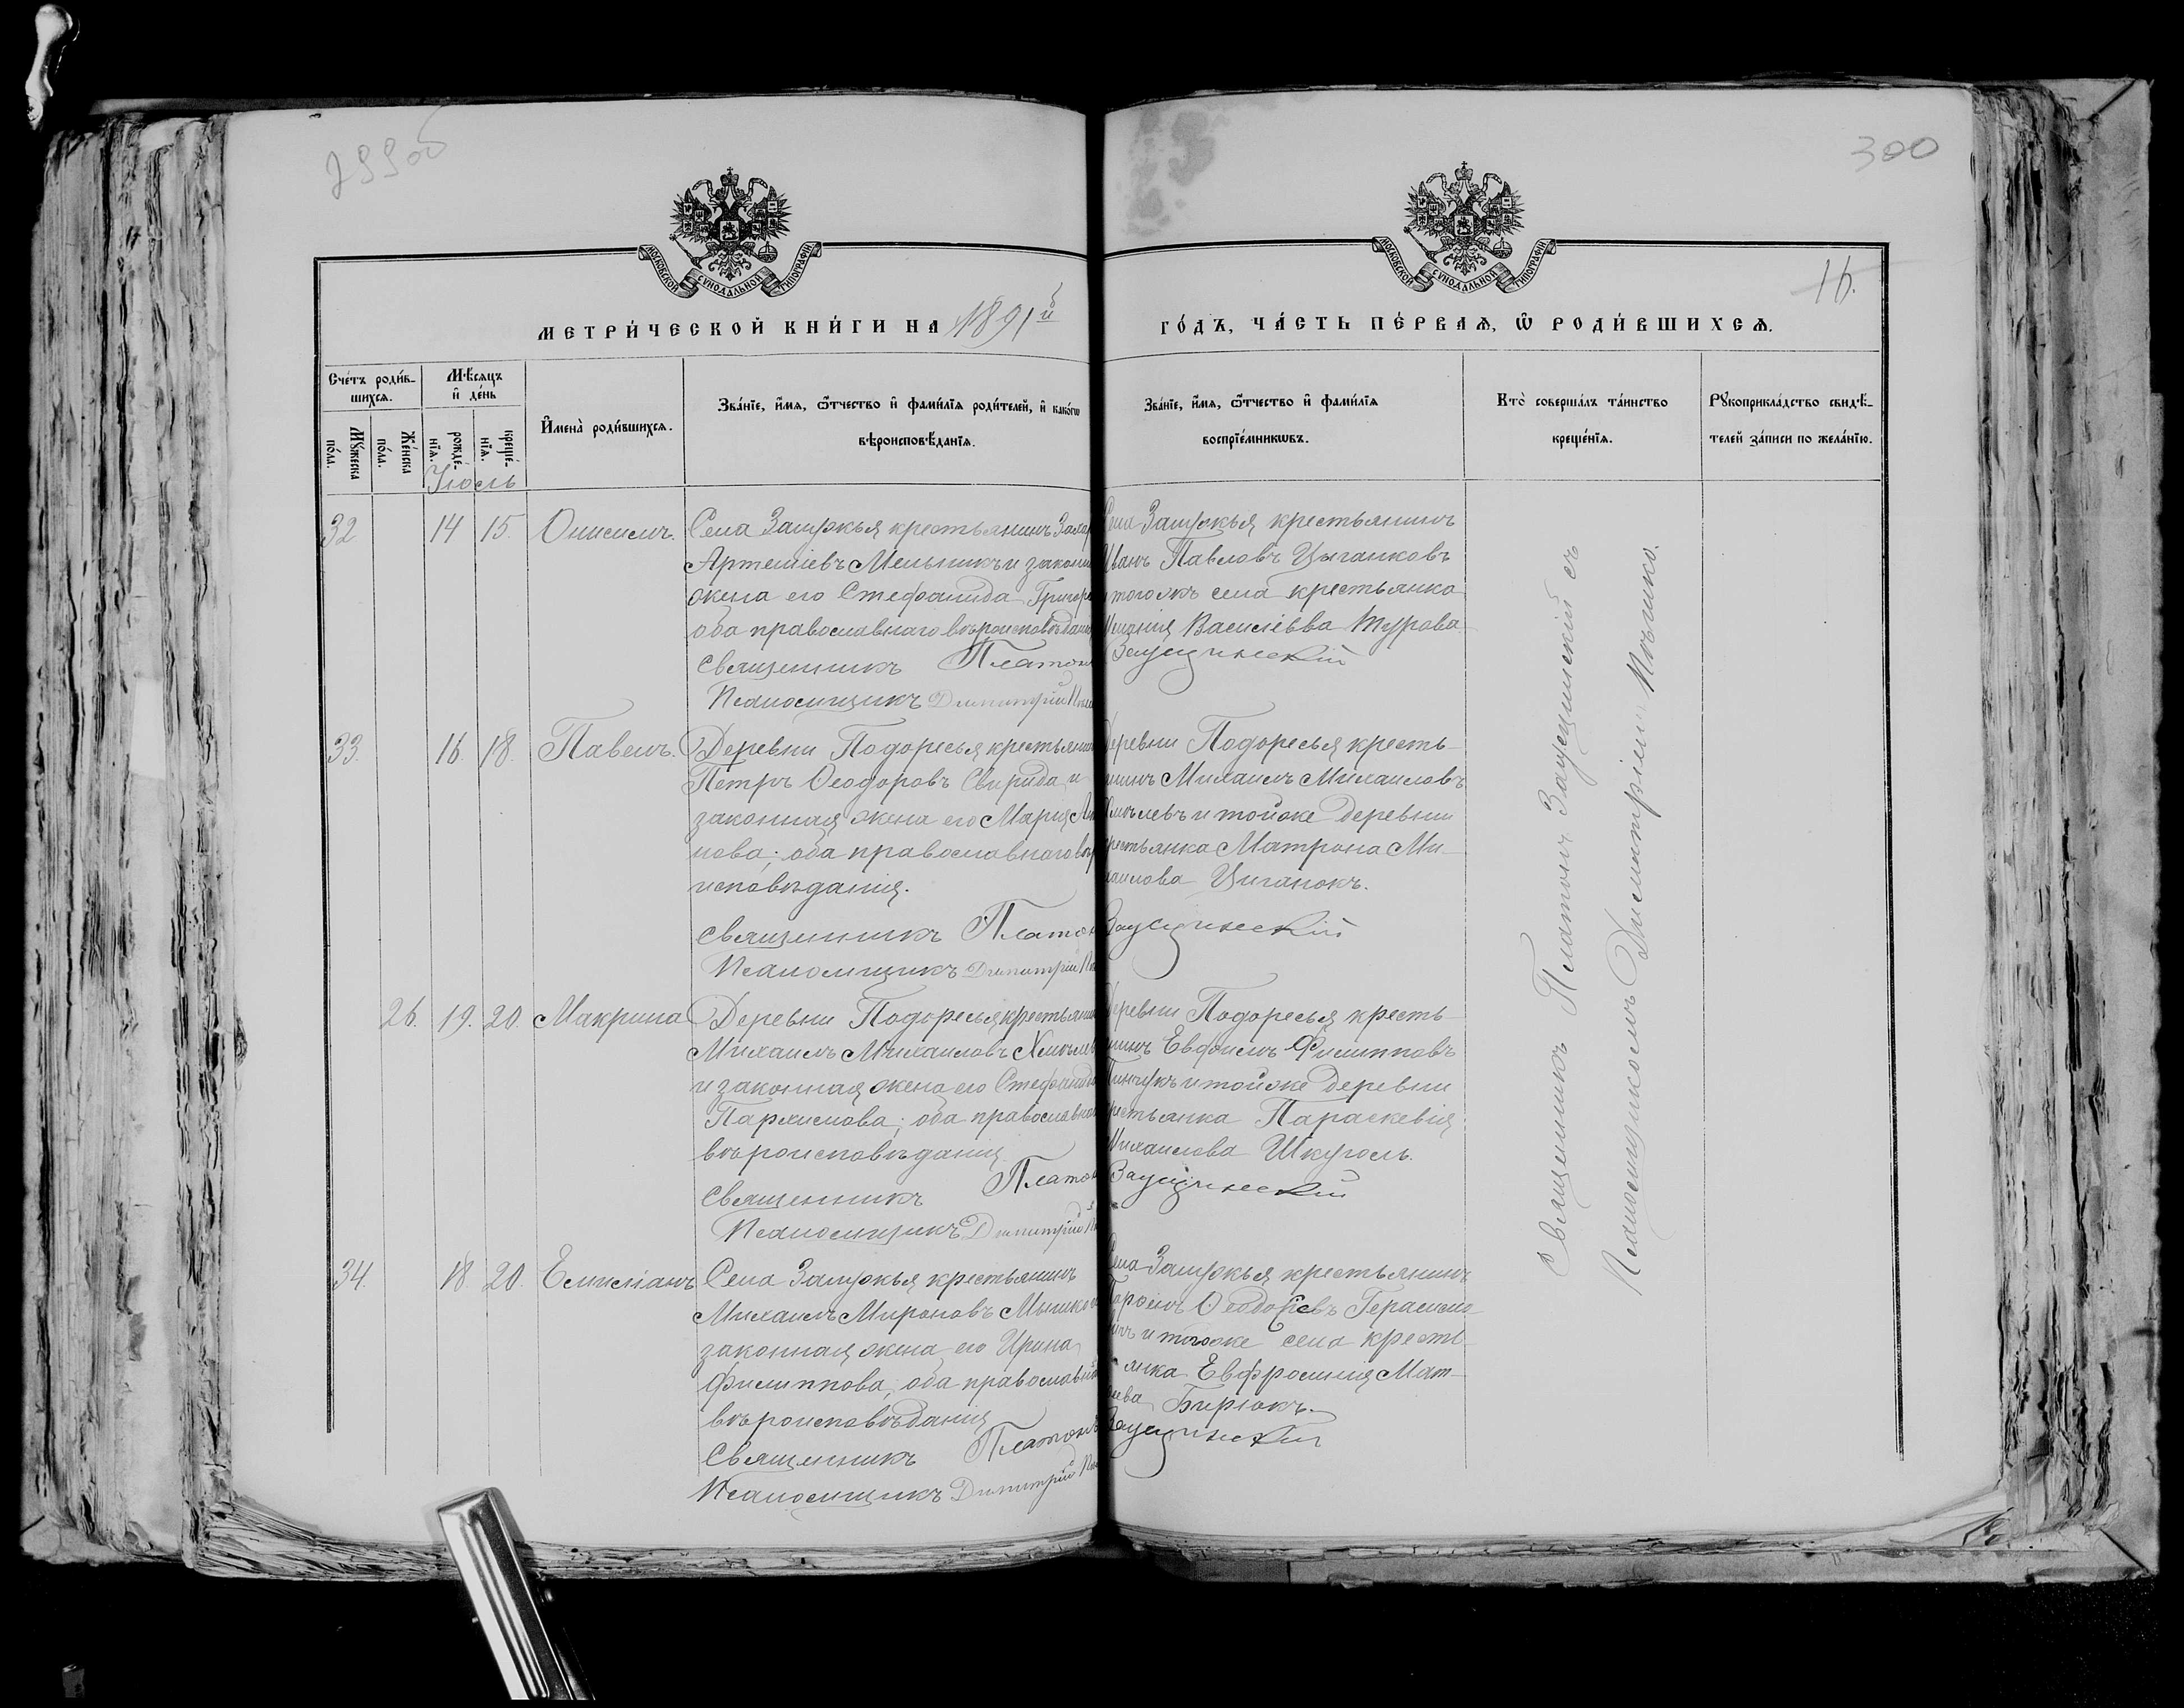 299об
300
МОСКОВСКОЙ СѴНОДАЛЬНОЙ ТИПОГРАФІИ
МОСКОВСКОЙ СѴНОДАЛЬНОЙ ТИПОГРАФІИ
16.
МЕТРИ́ЧЕСКОЙ КНИ́ГИ НА 1891й
ГО́ДЪ, ЧА́СТЬ ПЕ́РВАѦ, Ѡ҆ РОДИ́ВШИХСѦ.
Сче́тъ роди́в-
шихсѧ.
Мꙋжеска по́ла.
Же́нска по́ла.
Мѣ́сѧцъ
и҆ де́нь
рожде́-
нїѧ.
креще́-
нїѧ.
И҆мена̀ роди́вшихсѧ.
Зва́нїе, и҆́мѧ, ѻ҆́тчество и҆ фами́лїѧ роди́телей, и҆ како́гѡ
вѣроисповѣ́данїѧ.
Зва́нїе, и҆́мѧ, ѻ҆́тчество и҆ фами́лїѧ
воспрїе́мникѡвъ.
Кто̀ соверша́лъ та́инство
креще́нїѧ.
Рꙋкоприкла́дство свидѣ́-
телей за́писи по жела́нїю.
Іюль
32 14 15. Онисимъ.
Села Залужья крестьянинъ
Артеміевъ Мельникъ и закон
жена его Стефанида Григорь
оба православнаго вѣроисповѣдан
священникъ Платон
Псаломщикъ Димитрій
Села Залужья крестьянинъ
Иванъ Павловъ Цыганковъ
тогожъ села крестьянка
Василіева Турова
Заусцинскій
33. 16. 18. Павелъ.
Деревни Подоресья крестьянин
Петръ Ѳеодоровъ Свирида и
законная жена его Марія
нова; оба православнаго вѣр
исповѣданія.
священникъ Платон
Псаломщикъ Димитрій
Деревни Подоресья кресть-
янинъ Михаилъ Михаиловъ
Хмѣлевъ и тойже деревни
крестьянка Матрона Ми-
хаилова Цыганокъ.
Заусцинскій
26. 19. 20. Макрина
Деревни Подоресья крестьянин
Михаилъ Михаиловъ Хмѣлев
и законная жена его Стефанида
Пархимова; оба православнаг
вѣроисповѣданія
священникъ Платон
Псаломщикъ Димитрій
Деревни Подоресья кресть-
янинъ Евфимъ Филипповъ
Пинчукъ и тойже деревни
крестьянка Параскевія
Михаилова Шкуголь.
Заусцинскій
34. 18 20. Емиліанъ
Села Залужья крестьянинъ
Михаилъ Мироновъ
законная жена его Ирина
Филиппова, оба православна
вѣроисповѣданія
Священникъ Платонъ
Псаломщикъ Димитрій
Села Залужья крестьянинъ
Ѳеодоровъ Герасимо-
и тогоже села кресть-
янка Евфросинія Мат-
Бирюкъ.
Заусцинскій
Священникъ Платонъ Заусцинскій съ
Псаломщикомъ Димитріемъ